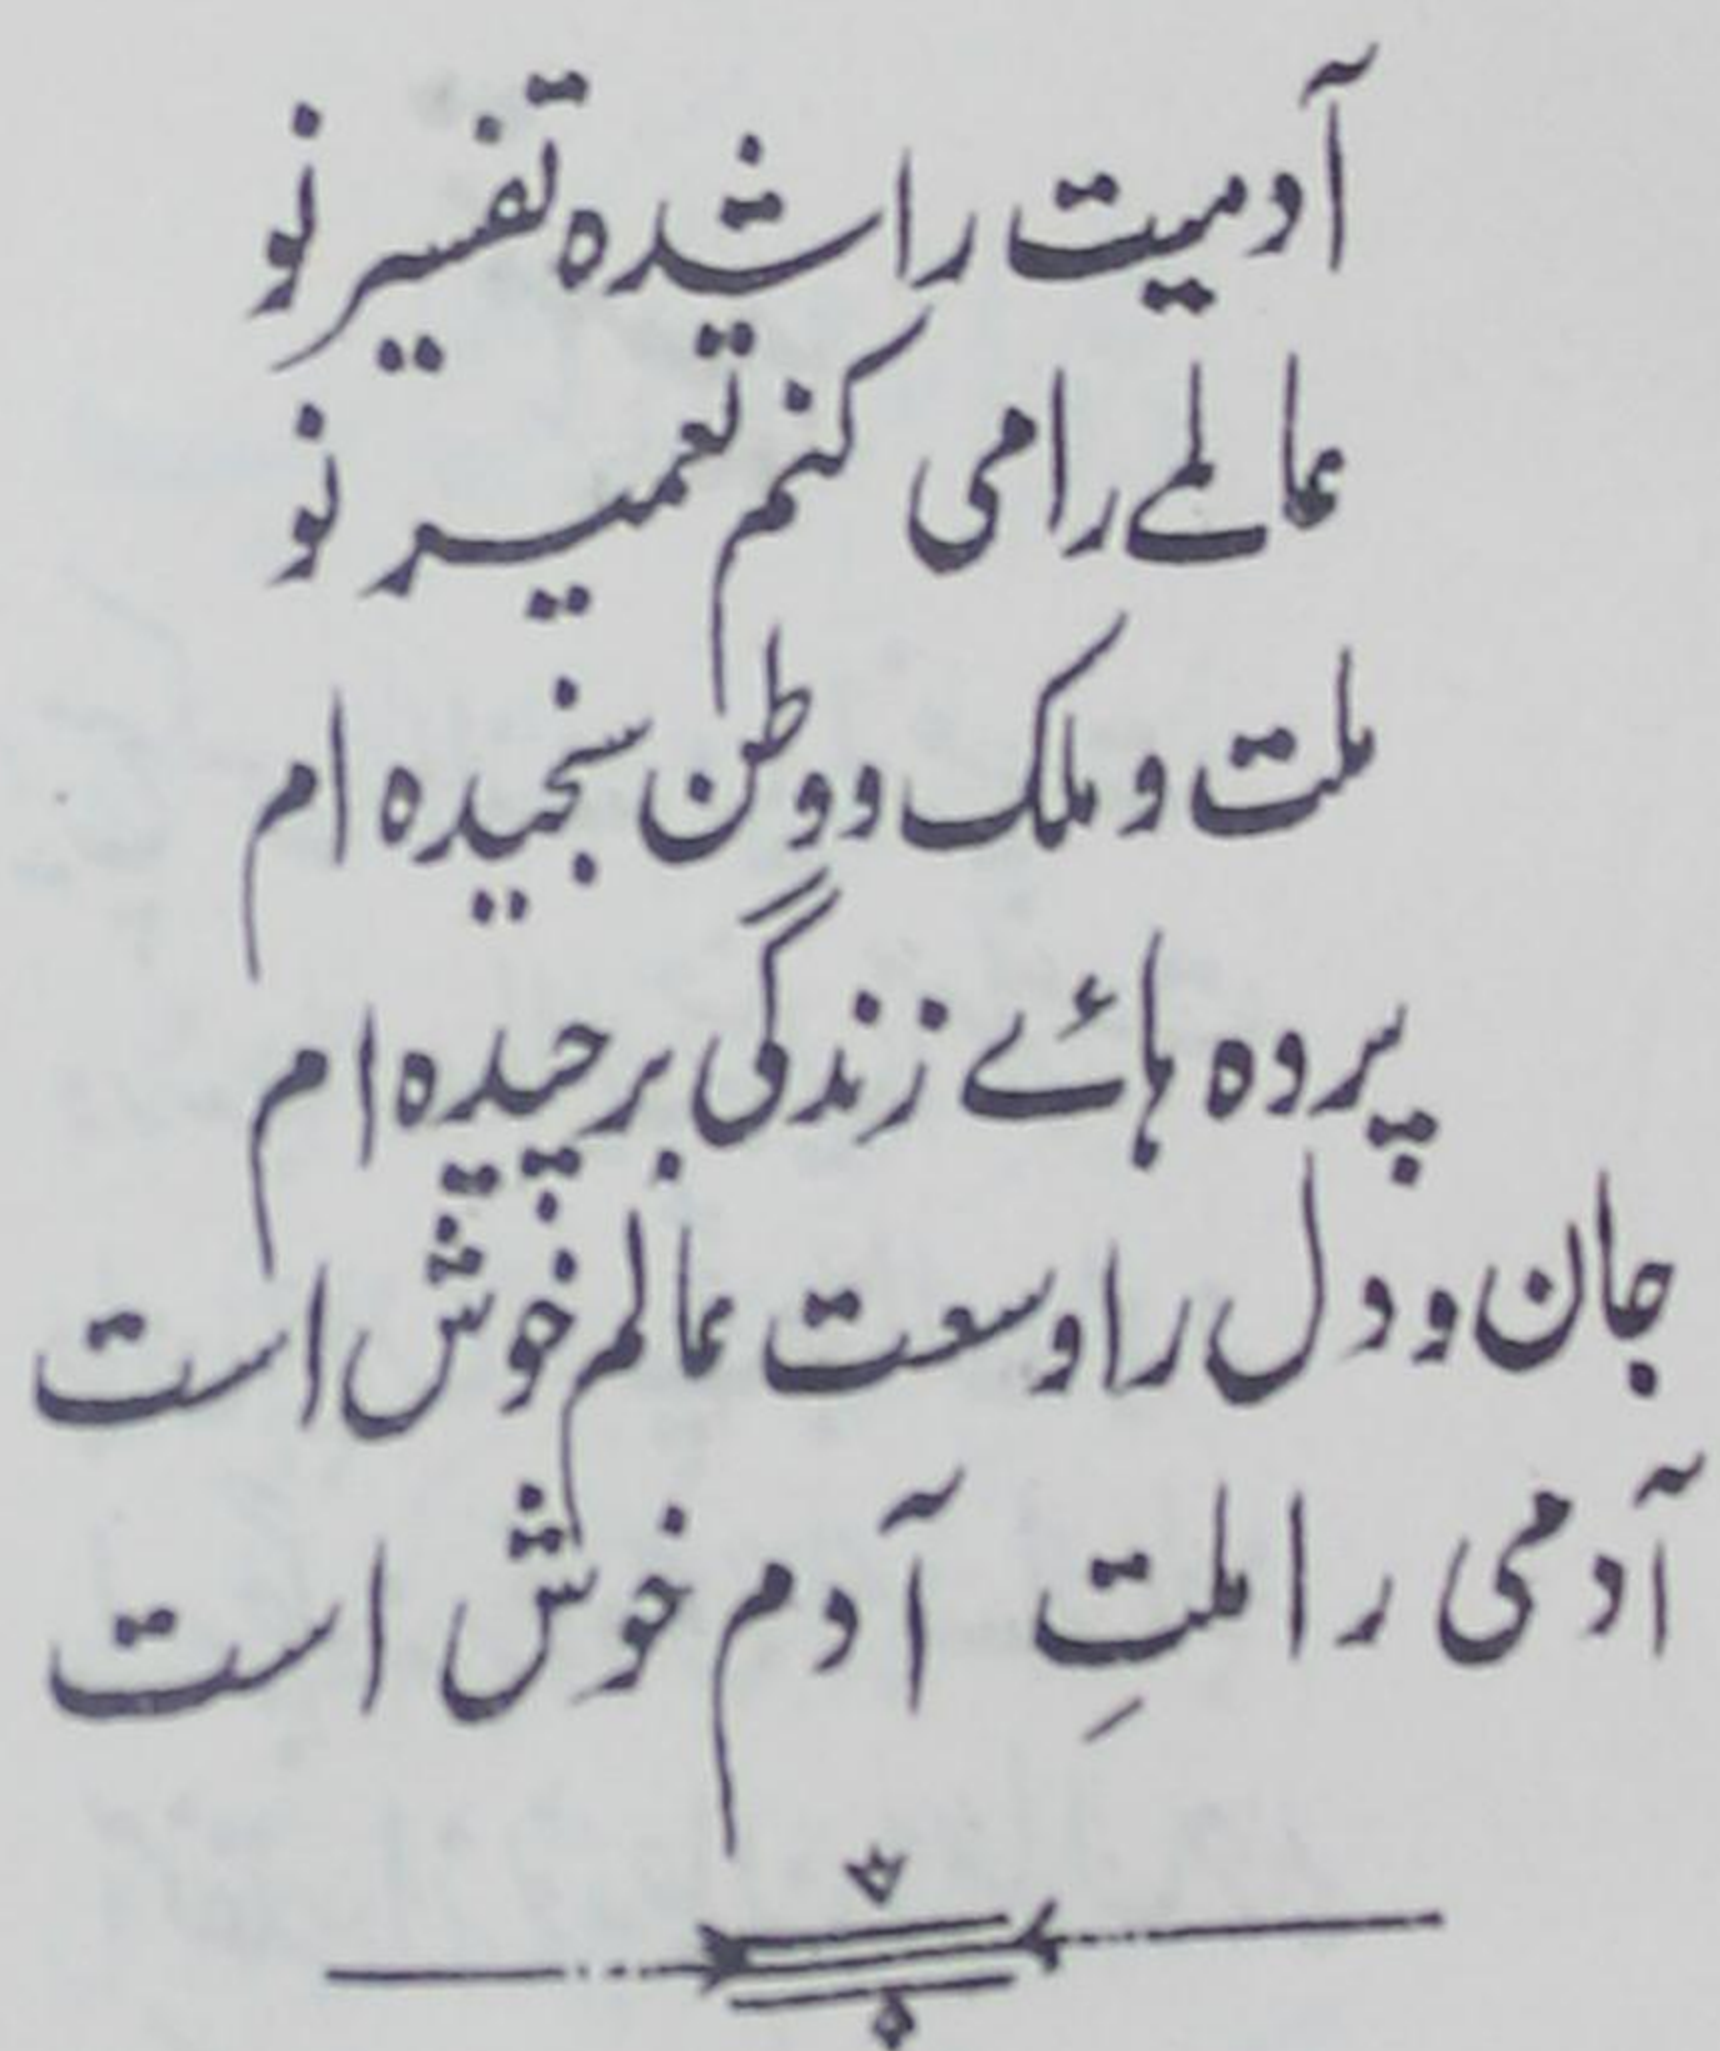 آدمیت را شده تفسیر نو
عالمے را می کنم تعمیر نو
ملت و ملک و وطن سنجیده ام
پرده ہائے زندگی برچیده ام
جان و دل را وسعت عالم خوش است
آدمی را ملتِ آدم خوش است